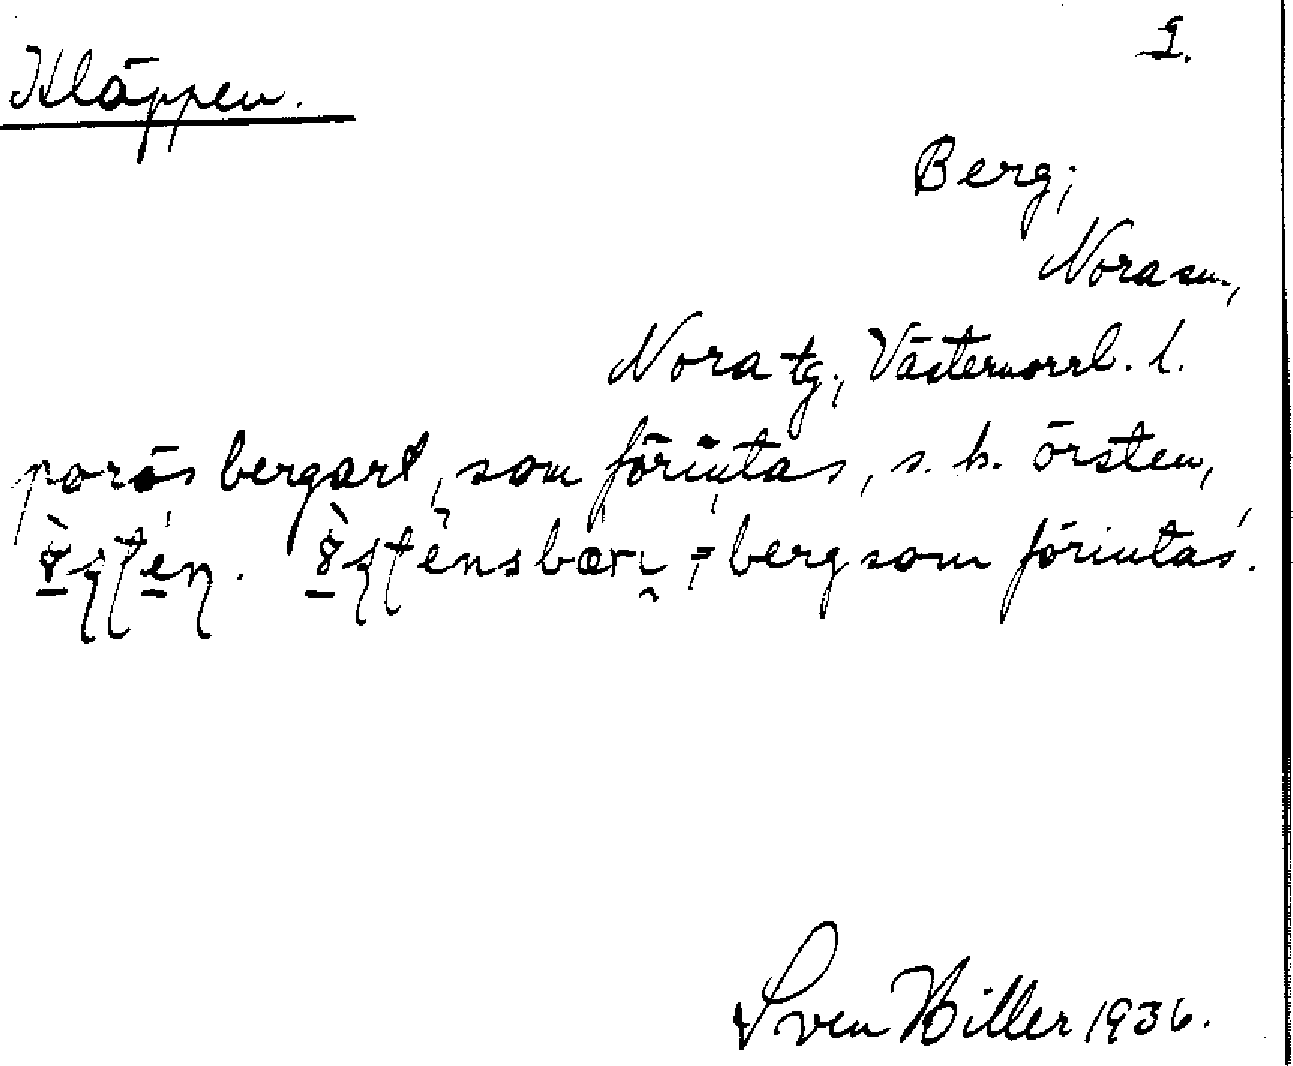 2.
Kläppen.
Berg;
Nora sn.,
Nora tg., Västernorrl. l.
porös bergart, som förintas, s. k. örsten,
= berg som förintas.
Sven Hiller 1936.